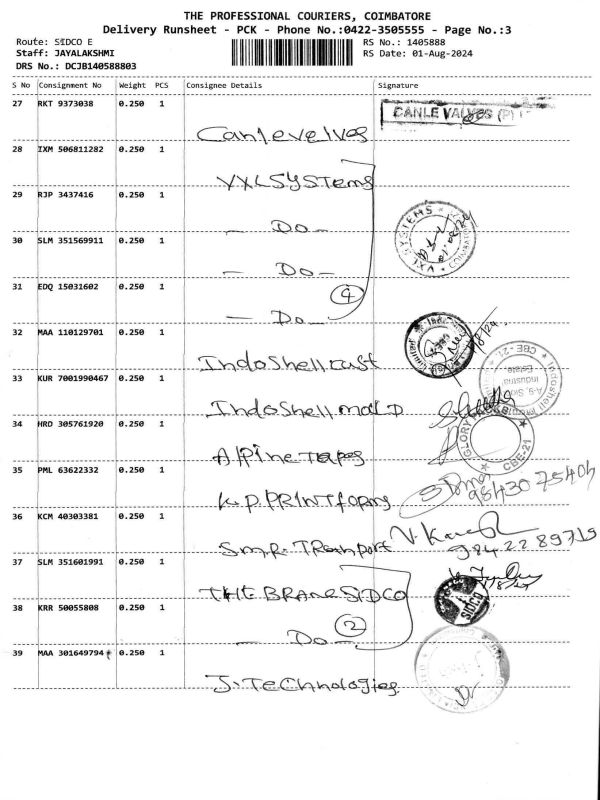 THE PROFESSIONAL COURIERS, COIMBATORE
Delivery Runsheet - PCK - Phone No.:0422-3505555 - Page No.:3
Route: SIDCO E
RS No.: 1405888
Staff: JAYALAKSHMI
RS Date: 01-Aug-2024
DRS No.: DCJB140588803
S No Consignment No Weight PCS Consignee Details Signature
27 RKT 9373038 0.250 1
Canlevelves
CANLE VALVES (P)
28 IXM 506811282 0.250 1
VXLSYSTems
29 RJP 3437416 0.250 1
- Do -
30 SLM 351569911 0.250 1
- Do -
31 EDQ 15031602 0.250 1
4
- Do -
32 MAA 110129701 0.250 1
IndoShell cast
33 KUR 7001990467 0.250 1
IndoShell maLD
34 HRD 305761920 0.250 1
Alpine Tapes
35 PML 63622332 0.250 1
K.P. PRINTforms
98430 75404
36 KCM 40303381 0.250 1
S.m.R. TRanport
984 22 89719
37 SLM 351601991 0.250 1
THE BRANE SIDCO
SIDCO
38 KRR 50055808 0.250 1
- Do -
2
39 MAA 301649794 0.250 1
J. Technologies